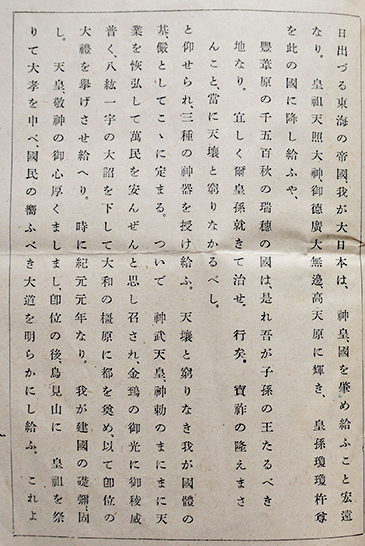 日出づる東海の帝國我が大日本は、　神皇、國を肇め給ふこと宏遠
なり。　皇祖天照大神御德廣大無邊、高天原に輝き、　皇孫瓊瓊杵尊
を此の國に降し給ふや、
豐葦原の千五百秋の瑞穗の國は、是れ吾が子孫の王たるべき
地なり。　宜しく爾皇孫就きて治せ。　行矣。　寶祚の隆えまさ
んこと、當に天壤と窮りなかるべし。
と仰せられ、三種の神器を授け給ふ。　天壤と窮りなき我が國體の
基、儼としてこゝに定まる。　ついで　神武天皇、神勅のまにまに天
業を恢弘して萬民を安んぜんと思し召され、金鵄の御光に御稜威
普く、八紘一宇の大詔を下して大和の橿原に都を奠め、以て卽位の
大禮を擧げさせ給へり。　時に紀元元年なり。　我が建國の礎彌〻固
し。　天皇、敬神の御心厚くましまし、卽位の後、鳥見山に　皇祖を祭
りて大孝を申べ、國民の嚮ふべき大道を明らかにし給ふ。　これよ